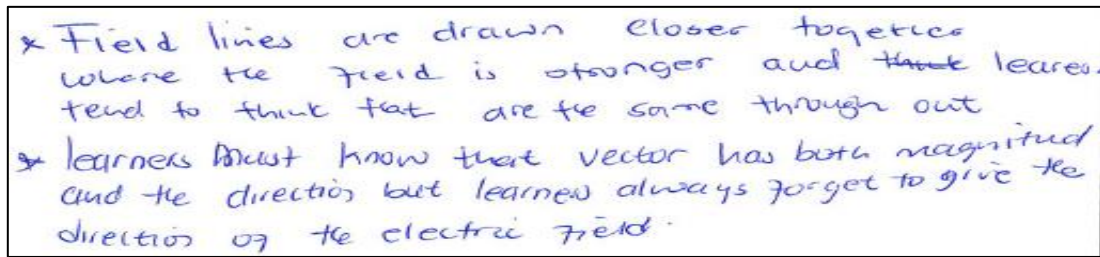 * Field lines are drawn closer togetter
where the field is stronger and think leares
tend to think that are the same through out
* learners must know that vector has both magnitud
and the direction but learners always forget to give the
direction of the electric field.